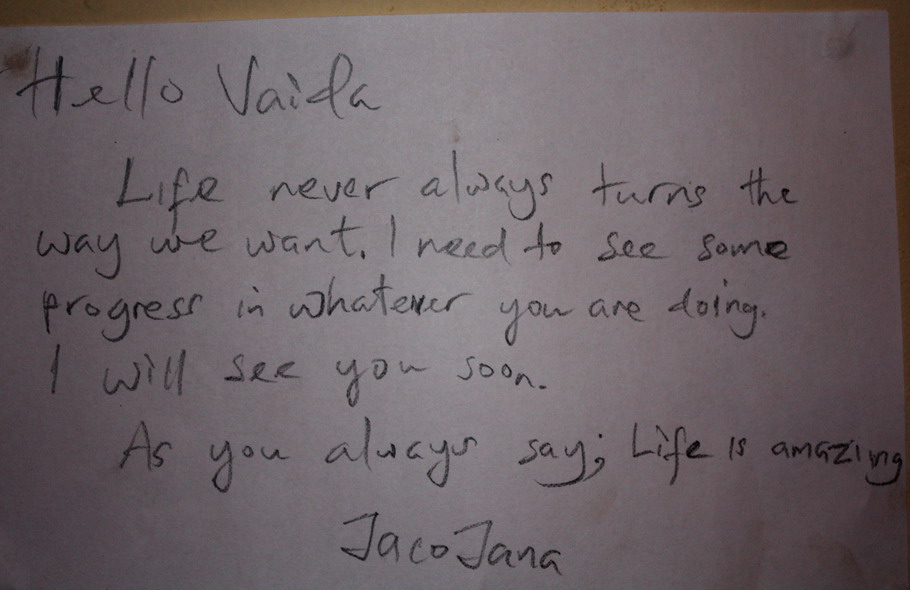 Hello Vaida
Life never always turns the
way we want. I need to see some
progress in whatever you are doing.
I will see you soon.
As you always say; Life is amazing
JacoJana